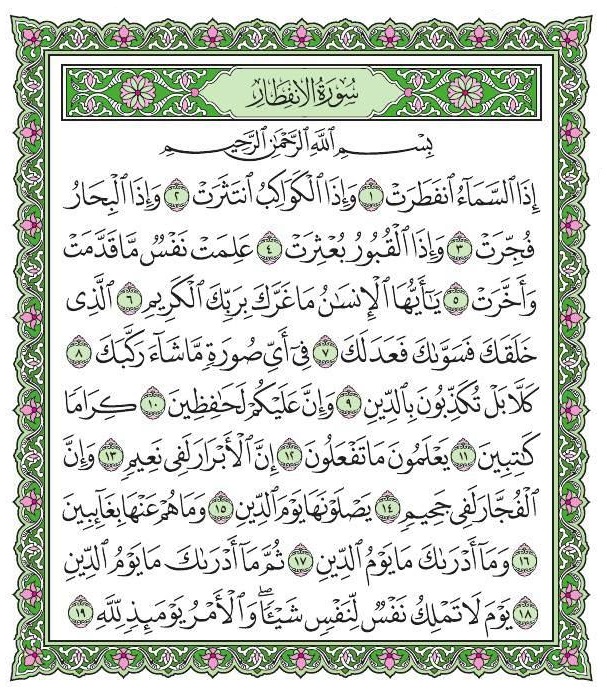 سُورَةُ الِانفِطَارِ
بِسْمِ ٱللَّهِ ٱلرَّحْمَٰنِ ٱلرَّحِيمِ
إِذَا ٱلسَّمَآءُ ٱنفَطَرَتْ ١ وَإِذَا ٱلْكَوَاكِبُ ٱنتَثَرَتْ ٢ وَإِذَا ٱلْبِحَارُ
فُجِّرَتْ ٣ وَإِذَا ٱلْقُبُورُ بُعْثِرَتْ ٤ عَلِمَتْ نَفْسٌ مَّا قَدَّمَتْ
وَأَخَّرَتْ ٥ يَٰٓأَيُّهَا ٱلْإِنسَٰنُ مَا غَرَّكَ بِرَبِّكَ ٱلْكَرِيمِ ٦ ٱلَّذِى
خَلَقَكَ فَسَوَّىٰكَ فَعَدَلَكَ ٧ فِىٓ أَىِّ صُورَةٍ مَّا شَآءَ رَكَّبَكَ ٨
كَلَّا بَلْ تُكَذِّبُونَ بِٱلدِّينِ ٩ وَإِنَّ عَلَيْكُمْ لَحَٰفِظِينَ ١٠ كِرَامًا
كَٰتِبِينَ ١١ يَعْلَمُونَ مَا تَفْعَلُونَ ١٢ إِنَّ ٱلْأَبْرَارَ لَفِى نَعِيمٍ ١٣ وَإِنَّ
ٱلْفُجَّارَ لَفِى جَحِيمٍ ١٤ يَصْلَوْنَهَا يَوْمَ ٱلدِّينِ ١٥ وَمَا هُمْ عَنْهَا بِغَآئِبِينَ
١٦ وَمَآ أَدْرَىٰكَ مَا يَوْمُ ٱلدِّينِ ١٧ ثُمَّ مَآ أَدْرَىٰكَ مَا يَوْمُ ٱلدِّينِ
١٨ يَوْمَ لَا تَمْلِكُ نَفْسٌ لِّنَفْسٍ شَيْـًٔا ۖ وَٱلْأَمْرُ يَوْمَئِذٍ لِّلَّهِ ١٩